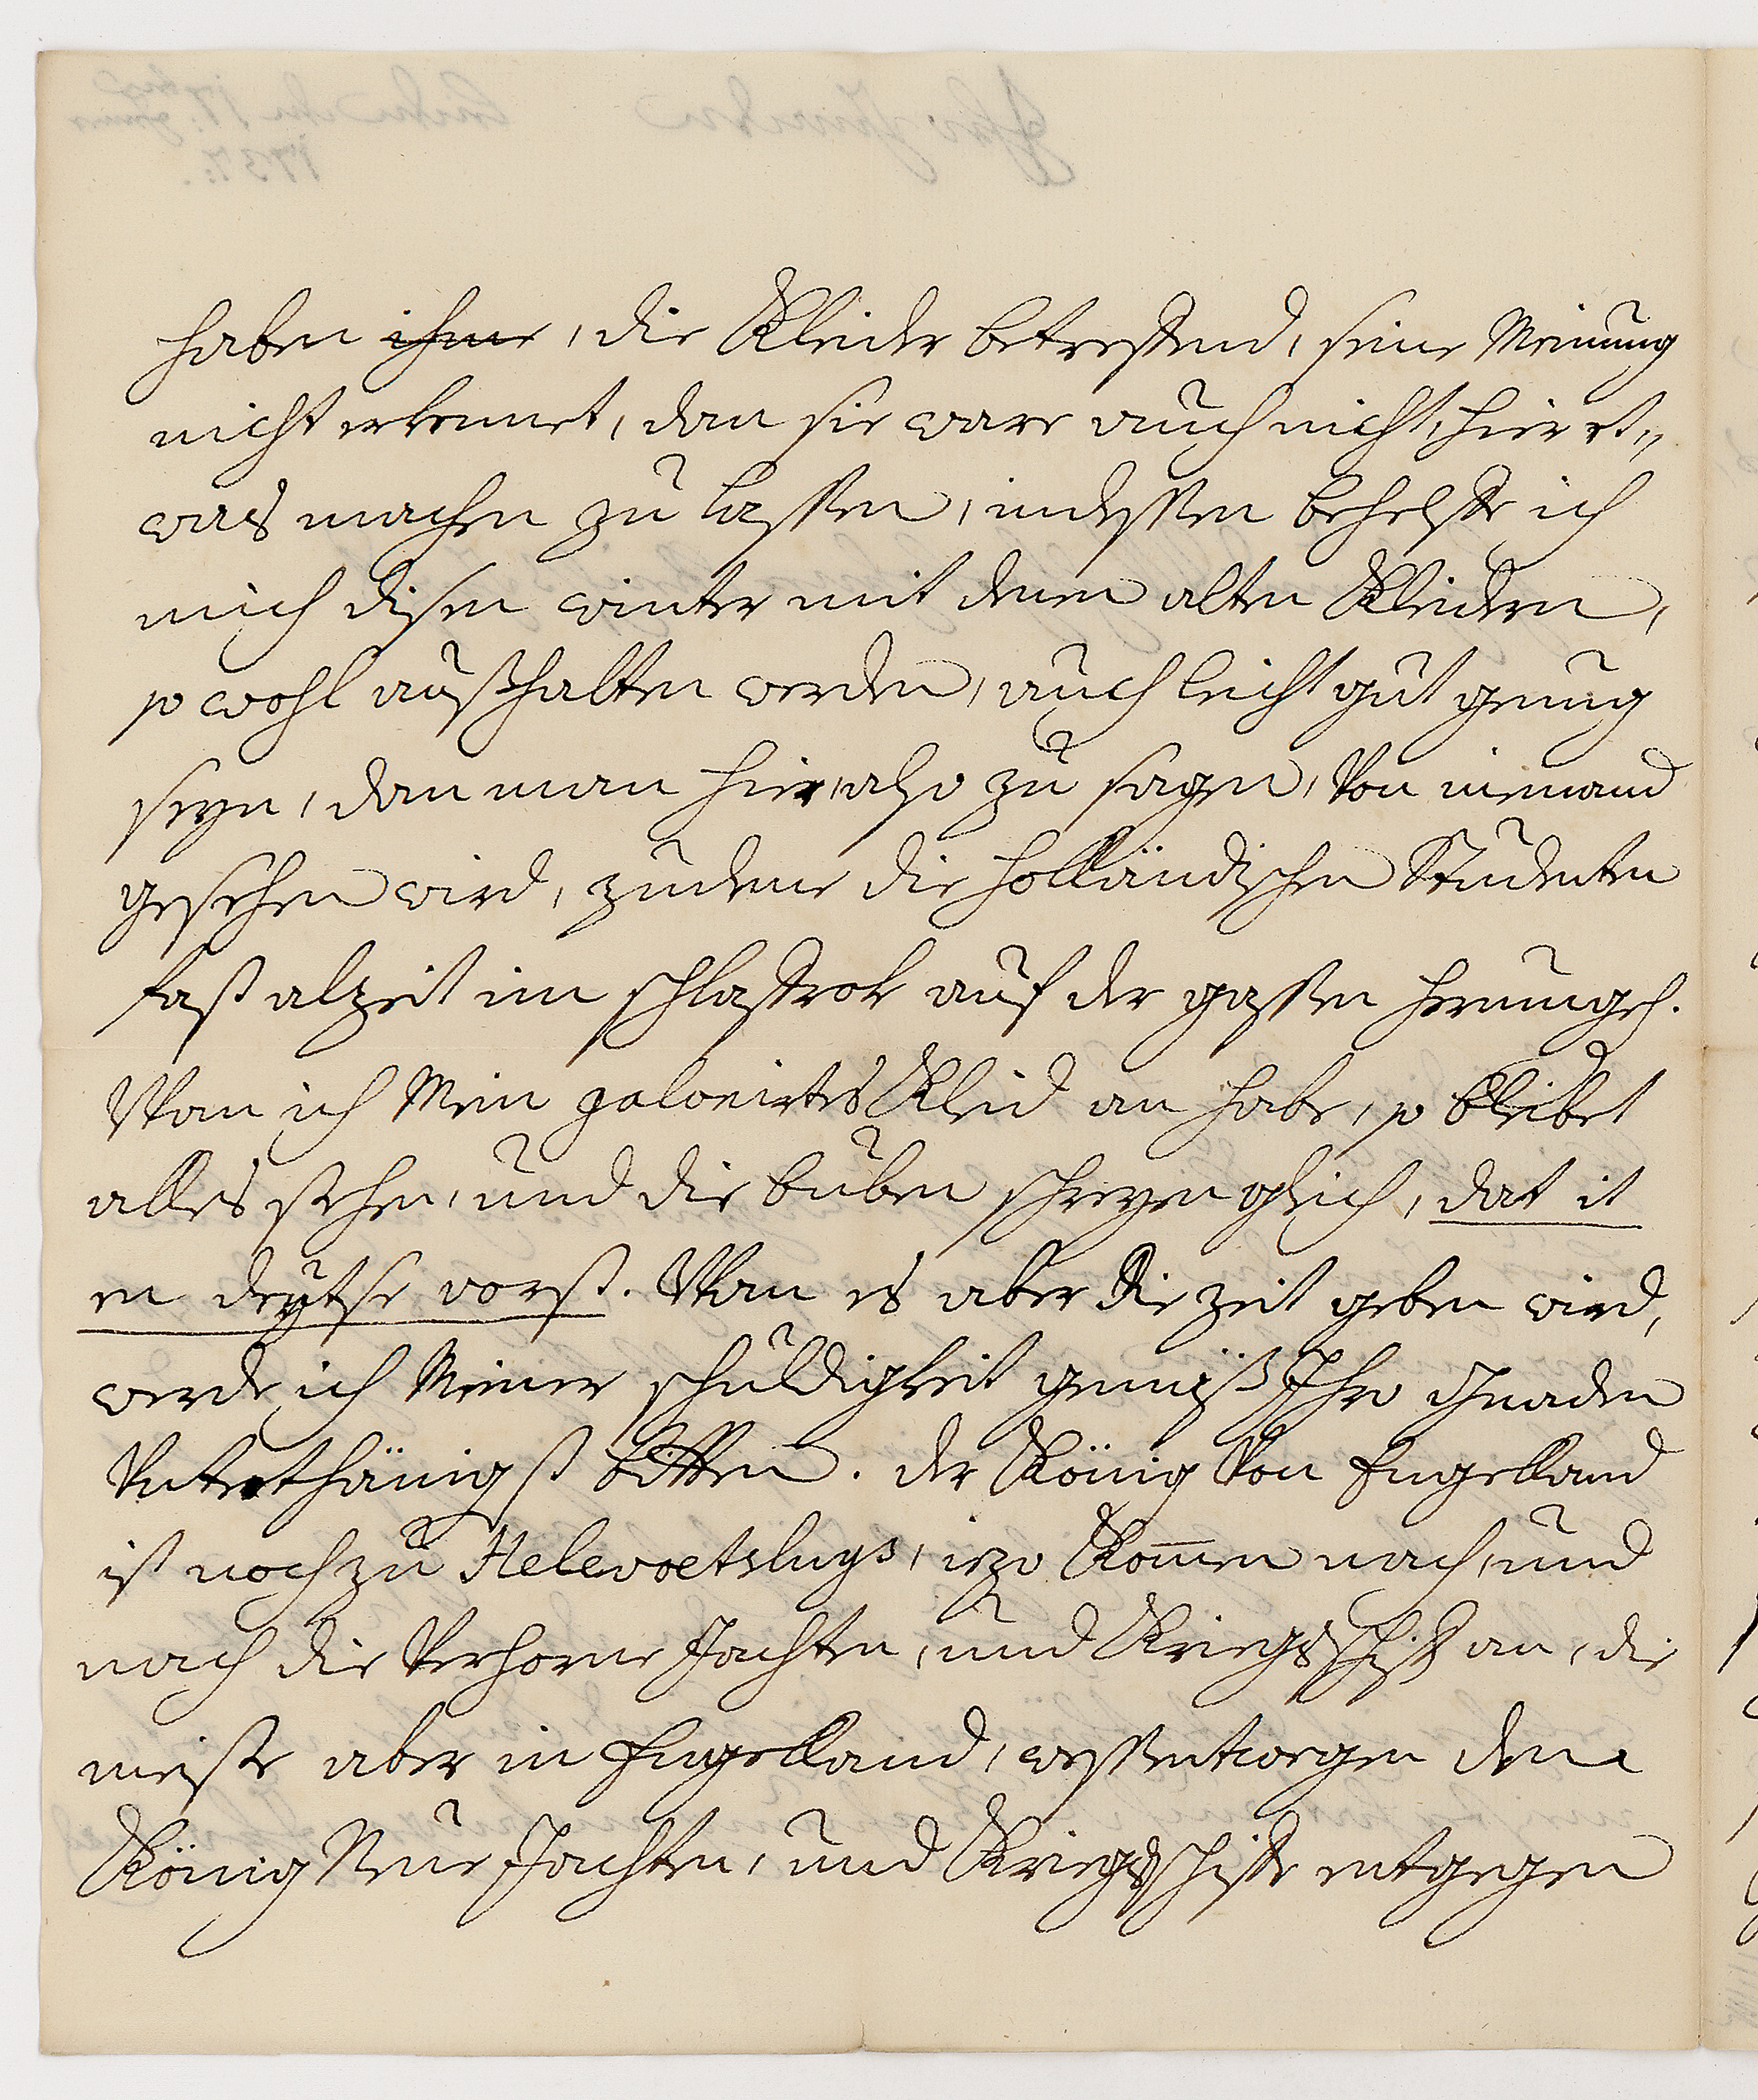 haben ihme, die Kleider betreffend, seine Meinung
nicht erkennet, dan sie ware auch nicht, hier et„
was machen zu lassen, indessen behelffe ich
mich disen winter mit denen alten Kleidern,
so wohl außhalten werden, auch leicht gut genug
seyn, dan man hier, also zu sagen, Von niemand
gesehen wird, zudeme die Holländischen Studenten
fast alzeit im schlaffrok auf der gassen herumgeh.
Wan ich Mein galonirtes Kleid an habe, so bleibet
alles stehen, und die buben schreyen gleich, dat it
en deutse vorst. Wan es aber die zeit geben wird,
werde ich Meiner schuldigkeit gemäß Ihro Gnaden
Unterthänigst bitten. der König Von Engelland
ist noch zu Helevoetsluys, iezo Kom̅en nach, und
nach die Verlorne Jachten, und Kriegsschiff an, die
meiste aber in Engelland, wessentwegen dem
König Neue Jachten, und Kriegsschiffe entgegen